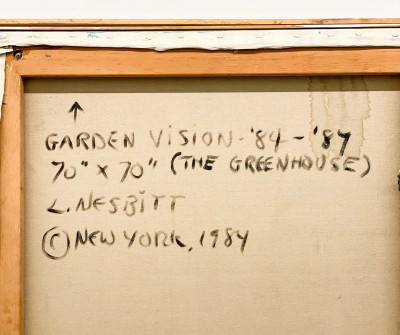 ↑
GARDEN VISION - '84 - '87
70" x 70" (THE GREENHOUSE)
L. NESBITT
© NEW YORK, 1984